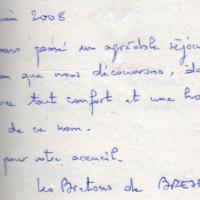 2008
passé un agréable séjou
que nous découvrons, da
tout confort et une ho
de ce nom.
pour votre accueil.
Les Bretons de BREST